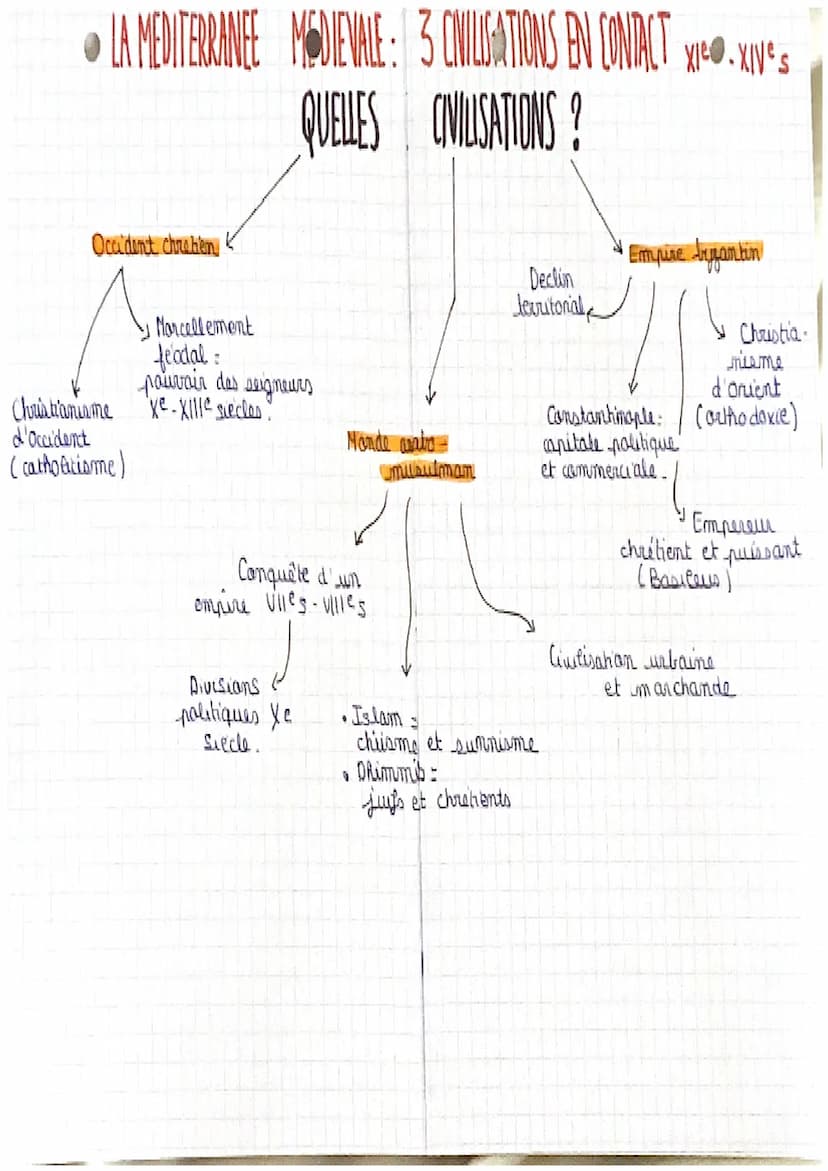 LA MEDITERRANEE MEDIEVALE : 3 CIVILISATIONS EN CONTACT XIe - XIVe s
QUELLES CIVILISATIONS ?
Occident chretien
Christianisme
d'Occident
(catholicisme)
Morcellement
féodal :
pouvoir des seigneurs
Xe - XIIIe siècles.
Monde arabo-
musulman
Conquête d'un
empire VIIe s - VIIIe s
Divisions
politiques Xe
siècle.
• Islam :
chiisme et sunnisme
• Dhimmis :
juifs et chretients
Civilisation urbaine
et marchande
Empire byzantin
Declin
territorial
Constantinople :
capitale politique
et commerciale.
Empereur
chrétient et puissant
(Basileus)
Christia-
nisme
d'orient
(orthodoxie)